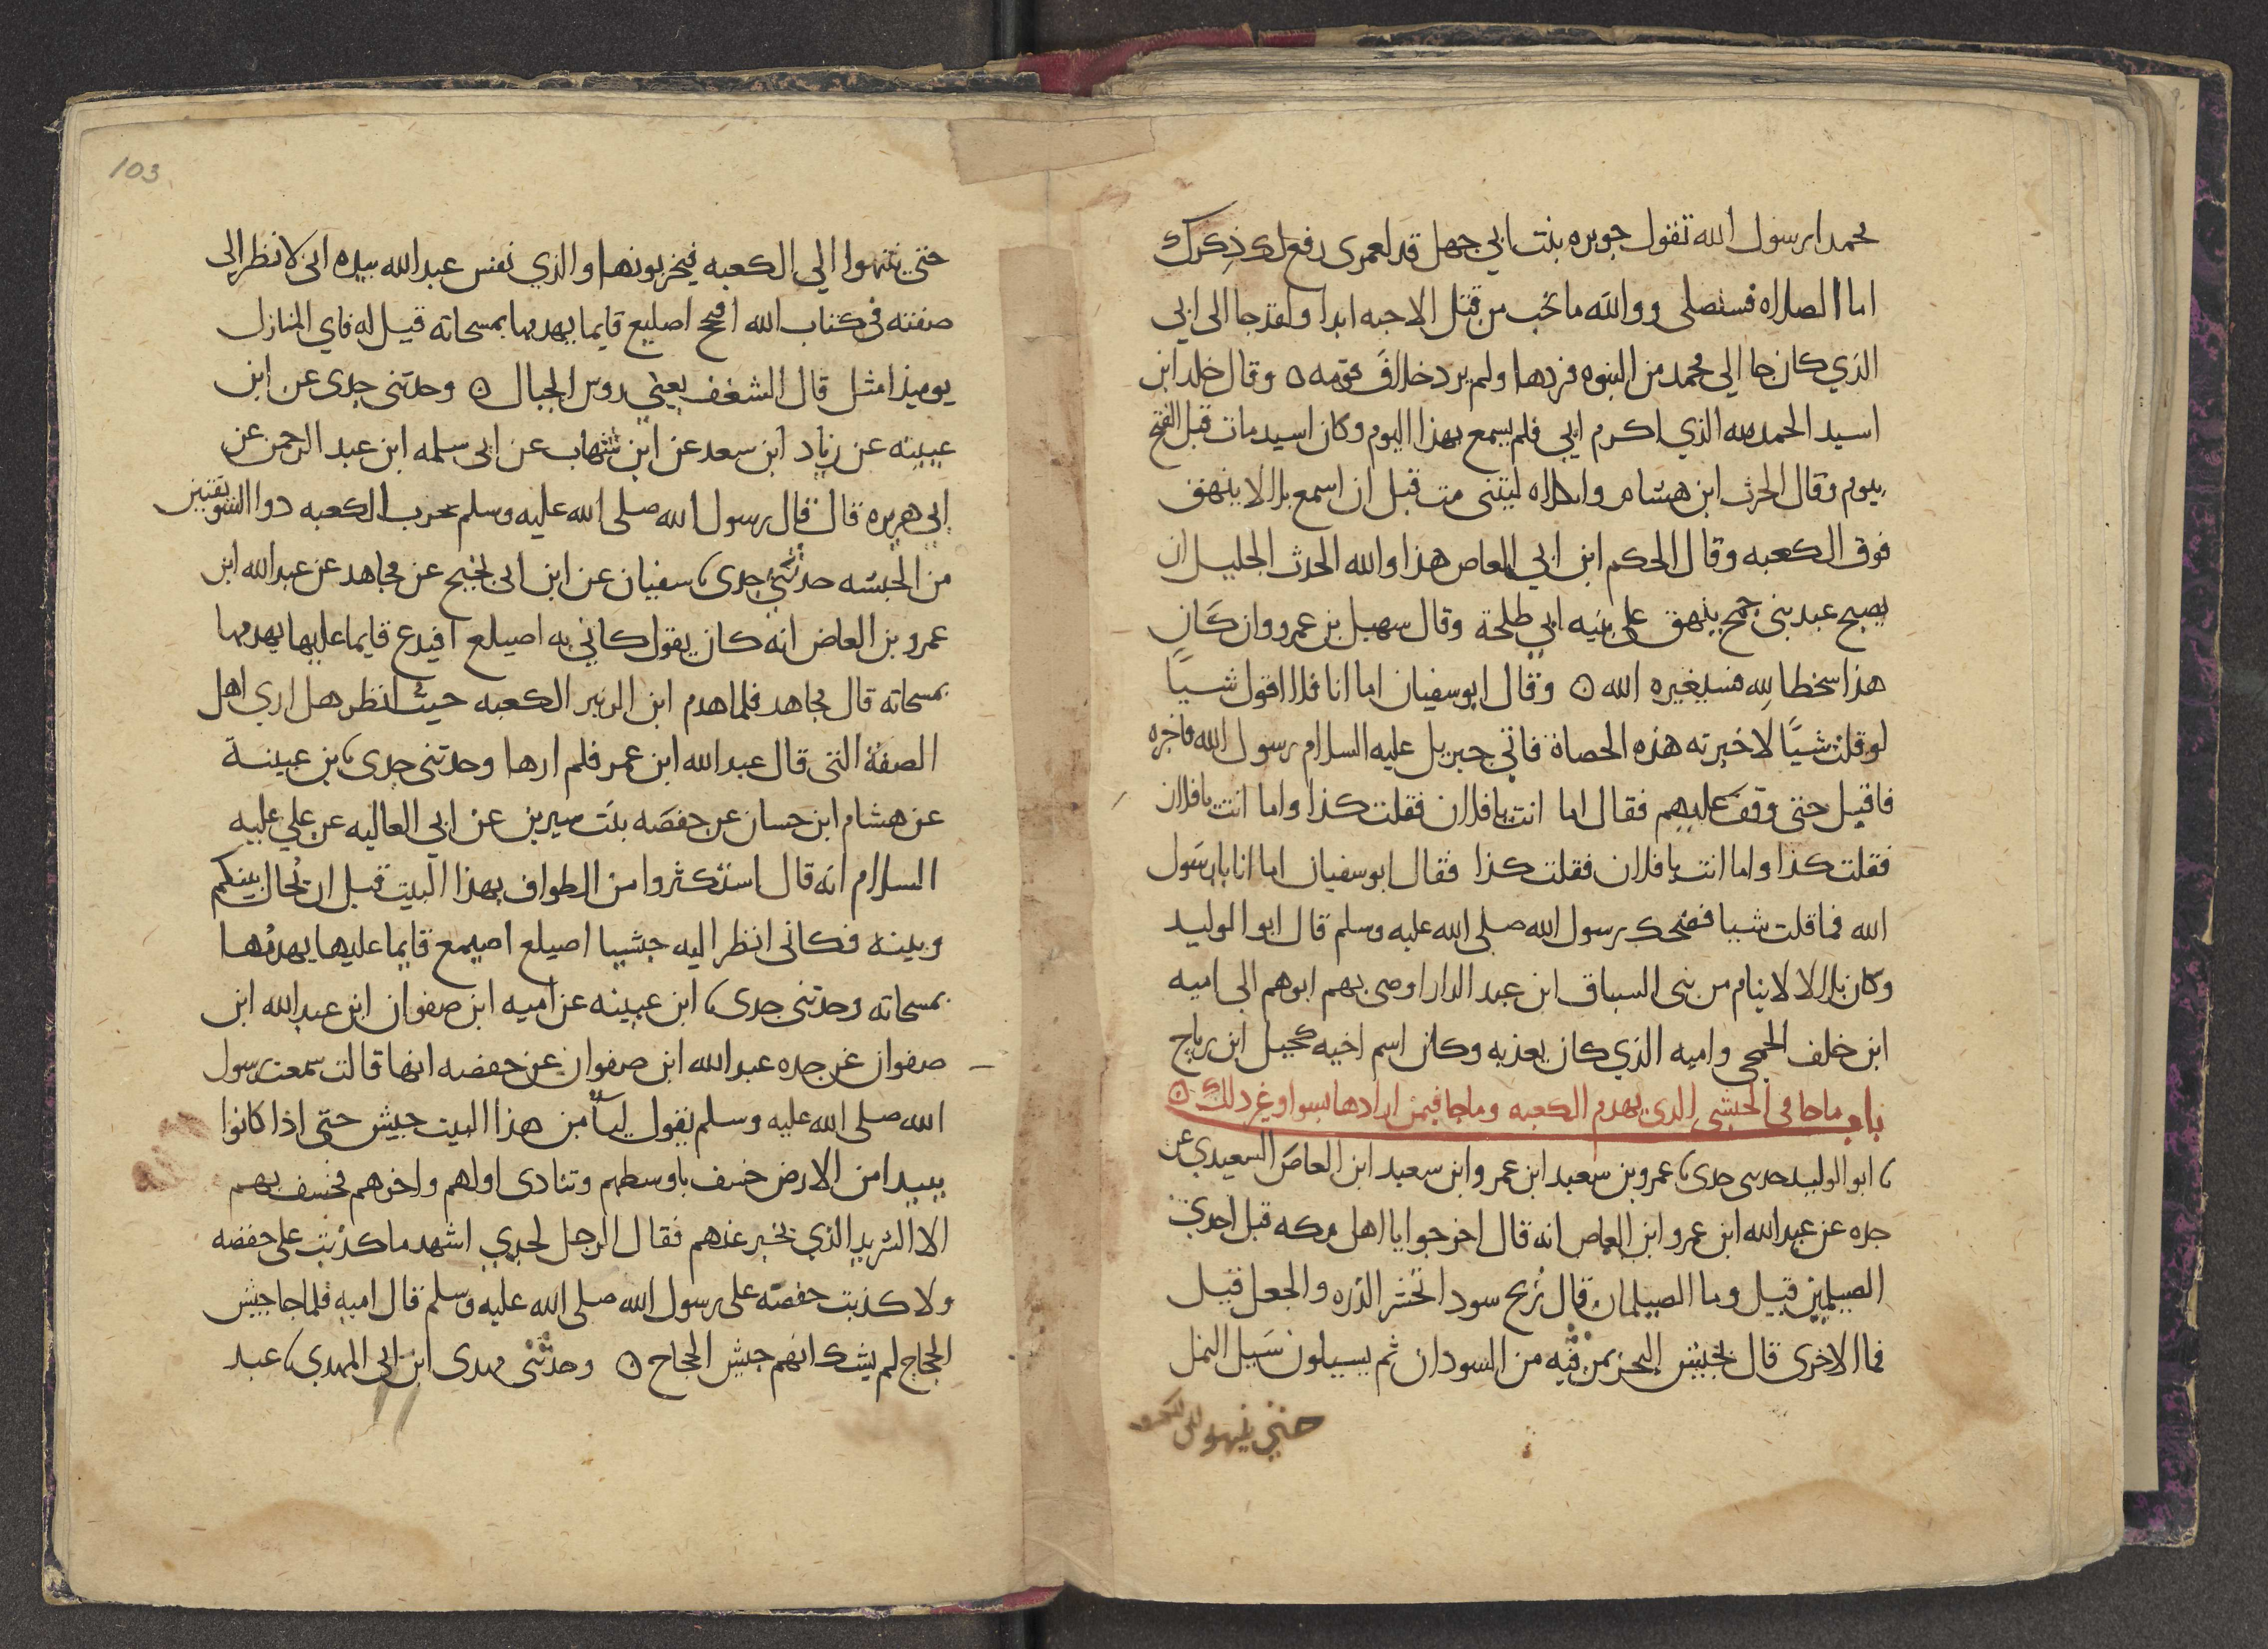 محمدا رسول الله تقول جويره بنت ابي جهل قد لعمرى رفع لك ذكرك
اما الصلاه فسنصلى ووالله ما نحب من قتل الاحبه ابدا ولقد جا الى ابي
الذي كان جا الي محمد من النبوه فردها ولم يرد خلاف قومه ٥ وقال خلد ابن
اسيد الحمد لله الذي اكرم ابي فلم يسمع بهذا اليوم وكان اسيد مات قبل الفتح
بيوم وقال الحرث ابن هشام واثكلاه ليتنى مت قبل ان اسمع بلالا ينهق
فوق الكعبه وقال الحكم ابن ابي العاص هذا والله الحدث الجليل ان
يصيح عبد بنى جمح ينهق على بنيه ابي طلحة وقال سهيل بن عمرو وان كان
هذا سخطا لله فسيغيره الله ٥ وقال ابو سفيان اما انا فلا اقول شيا
لو قلت شيا لاخبرته هذه الحصاة فاتى جبريل عليه السلام رسول الله فاخبره
فاقبل حتى وقف عليهم فقال اما انت يا فلان فقلت كذا واما انت يا فلان
فقلت كذا واما انت يا فلان فقلت كذا فقال ابو سفيان اما انا يا رسول
الله فما قلت شيا فضحك رسول الله صلى الله عليه وسلم قال ابو الوليد
وكان بلالا لايتام من بنى السباق ابن عبد الدار اوصى بهم ابوهم الى اميه
ابن خلف الجمحى واميه الذي كان يعذبه وكان اسم اخيه كحيل ابن رباح
باب ما جا في الحبشى الذى يهدم الكعبه وما جا فيمن ارادها بسوا وغير ذلك ٥
ابو الوليد حدثنى جدى عمرو بن سعيد ابن عمرو ابن سعيد ابن العاص السعيدي عن
جده عن عبد الله ابن عمرو ابن العاص انه قال اخرجوا يا اهل مكه قبل احدى
الصيلمين قيل وما الصيلمان قال ريح سودا تحشر الذره والجعل قيل
فما الاخرى قال تجيش البحر بمن فيه من السودان ثم يسيلون سيل النمل
حتى ينتهوا الى الكعبه
103
حتى ينتهوا الي الكعبه فيخربونها والذي نفس عبد الله بيده انى لانظر الى
صفته فى كتاب الله افيحج اصيلع قايما يهدمها بمسحاته قيل له فاي المنازل
يوميذ امثل قال الشغف يعني روس الجبال ٥ وحدثنى جدى عن ابن
عيينه عن زياد ابن سعد عن ابن شهاب عن ابى سلمه ابن عبد الرحمن عن
ابي هريره قال قال رسول الله صلى الله عليه وسلم يخرب الكعبه ذوا السويقتين
من الحبشه حدثنى جدى سفيان عن ابن ابى نجيح عن مجاهد عن عبد الله ابن
عمرو بن العاص انه كان يقول كاني به اصيلع افيدع قايما عليها يهدمها
بمسحاته قال مجاهد فلما هدم ابن الزبير الكعبه حيث انظر هل ارى اهل
الصفة التى قال عبد الله ابن عمر فلم ارها وحدثنى جدى بن عيينة
عن هشام ابن حسان عن حفصه بنت سيرين عن ابي العاليه عن علي عليه
السلام انه قال استكثروا من الطواف بهذا البيت قبل ان يحال بينكم
وبينه فكانى انظر اليه حبشيا اصيلع اصيمع قايما عليها يهدمها
بمسحاته وحدثنى جدى ابن عيينه عن اميه ابن صفوان ابن عبد الله ابن
صفوان عن جده عبد الله ابن صفوان عن حفصه انها قالت سمعت رسول
الله صلى الله عليه وسلم يقول ليأمن هذا البيت جيش حتى اذا كانوا
ببيدا من الارض خسف باوسطهم وتنادى اولهم واخرهم فخسف بهم
الا الشريد الذي يخبر عنهم فقال الرجل لجدي اشهد ما كذبت على حفصه
ولا كذبت حفصه على رسول الله صلى الله عليه وسلم قال اميه فلما جا جيش
الحجاج لم يشك انهم جيش الحجاج ٥ وحدثنى مهدى ابن ابى المهدي عبد